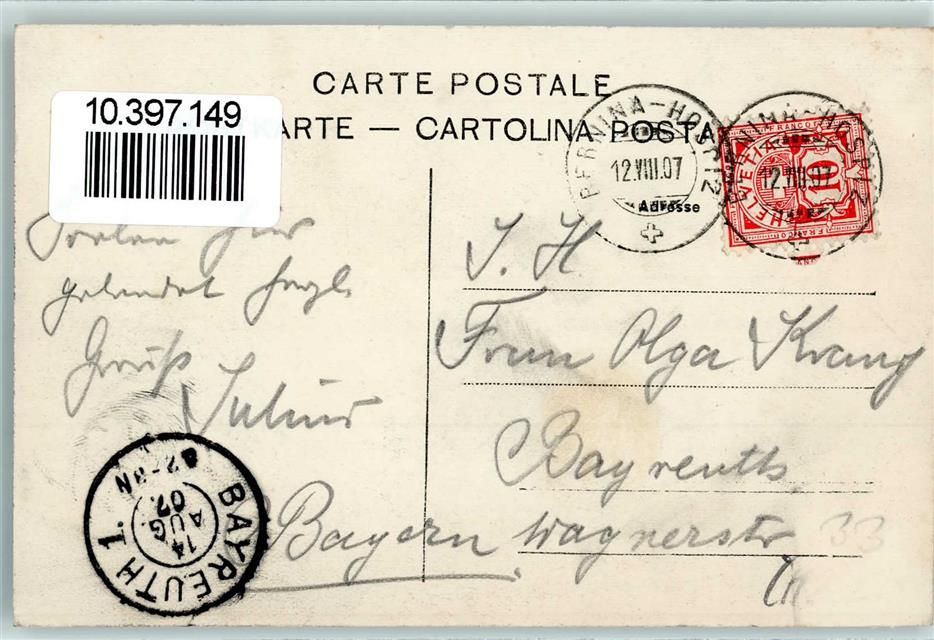 CARTE POSTALE
10.397.149
ARTE — CARTOLINA POSTA
BERNINA-HOSPIZ
12.VIII.07
BERNINA-HOSPIZ
12.VIII.07
FRANCO
HELVETIA
10
FRANCO
Adresse
Soeben hier
gelandet herzl.
Gruß
Julius
S. H.
Frau Olga Kranz
Bayreuth
Bayern, Wagnerstr
33
BAYREUTH 1.
14
AUG
07
2-3N